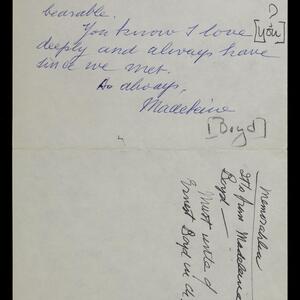 bearable.
?
You know I love [you]
deeply and always have
since we met.
As always,
Madeleine
[Boyd]
Memorabilia
from Madeleine
Boyd —
Must interled
Ernest Boyd in